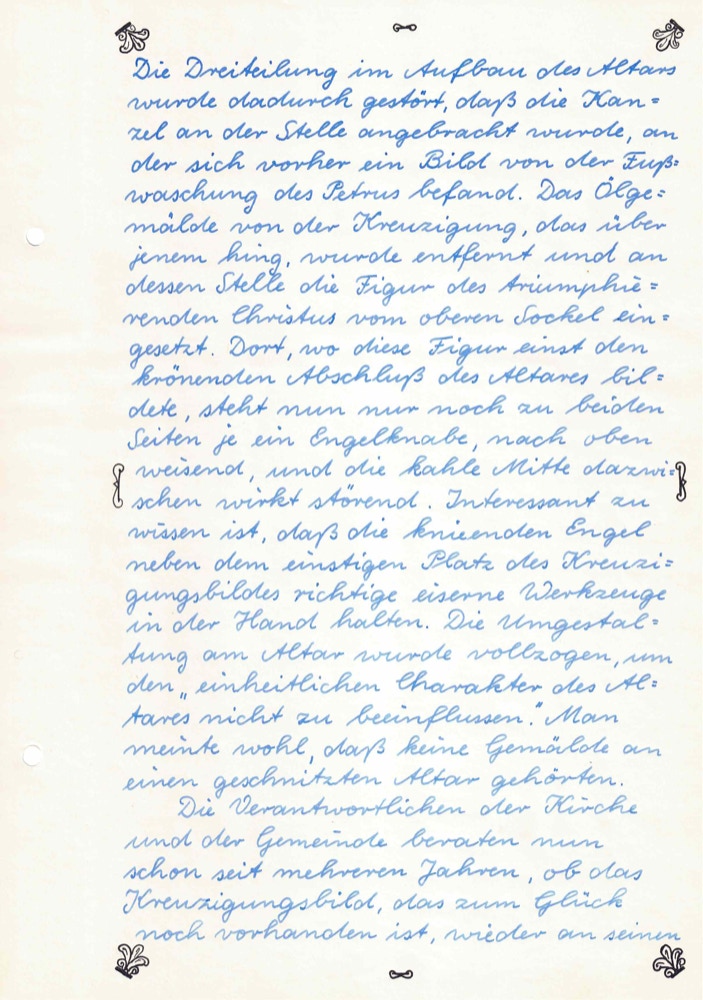 Die Dreiteilung im Aufbau des Altars
wurde dadurch gestört, daß die Kan=
zel an der Stelle angebracht wurde, an
der sich vorher ein Bild von der Fuß=
waschung des Petrus befand. Das Ölge=
mälde von der Kreuzigung, das über
jenem hing, wurde entfernt und an
dessen Stelle die Figur des triumphie=
renden Christus vom oberen Sockel ein=
gesetzt. Dort, wo diese Figur einst den
krönenden Abschluß des Altares bil=
dete, steht nun nur noch zu beiden
Seiten je ein Engelknabe, nach oben
weisend, und die kahle Mitte dazwi=
schen wirkt störend. Interessant zu
wissen ist, daß die knieenden Engel
neben dem einstigen Platz des Kreuzi=
gungsbildes richtige eiserne Werkzeuge
in der Hand halten. Die Umgestal=
tung am Altar wurde vollzogen, um
den „einheitlichen Charakter des Al=
tares nicht zu beeinflussen." Man
meinte wohl, daß keine Gemälde an
einen geschnitzten Altar gehörten.
Die Verantwortlichen der Kirche
und der Gemeinde beraten nun
schon seit mehreren Jahren, ob das
Kreuzigungsbild, das zum Glück
noch vorhanden ist, wieder an seinen